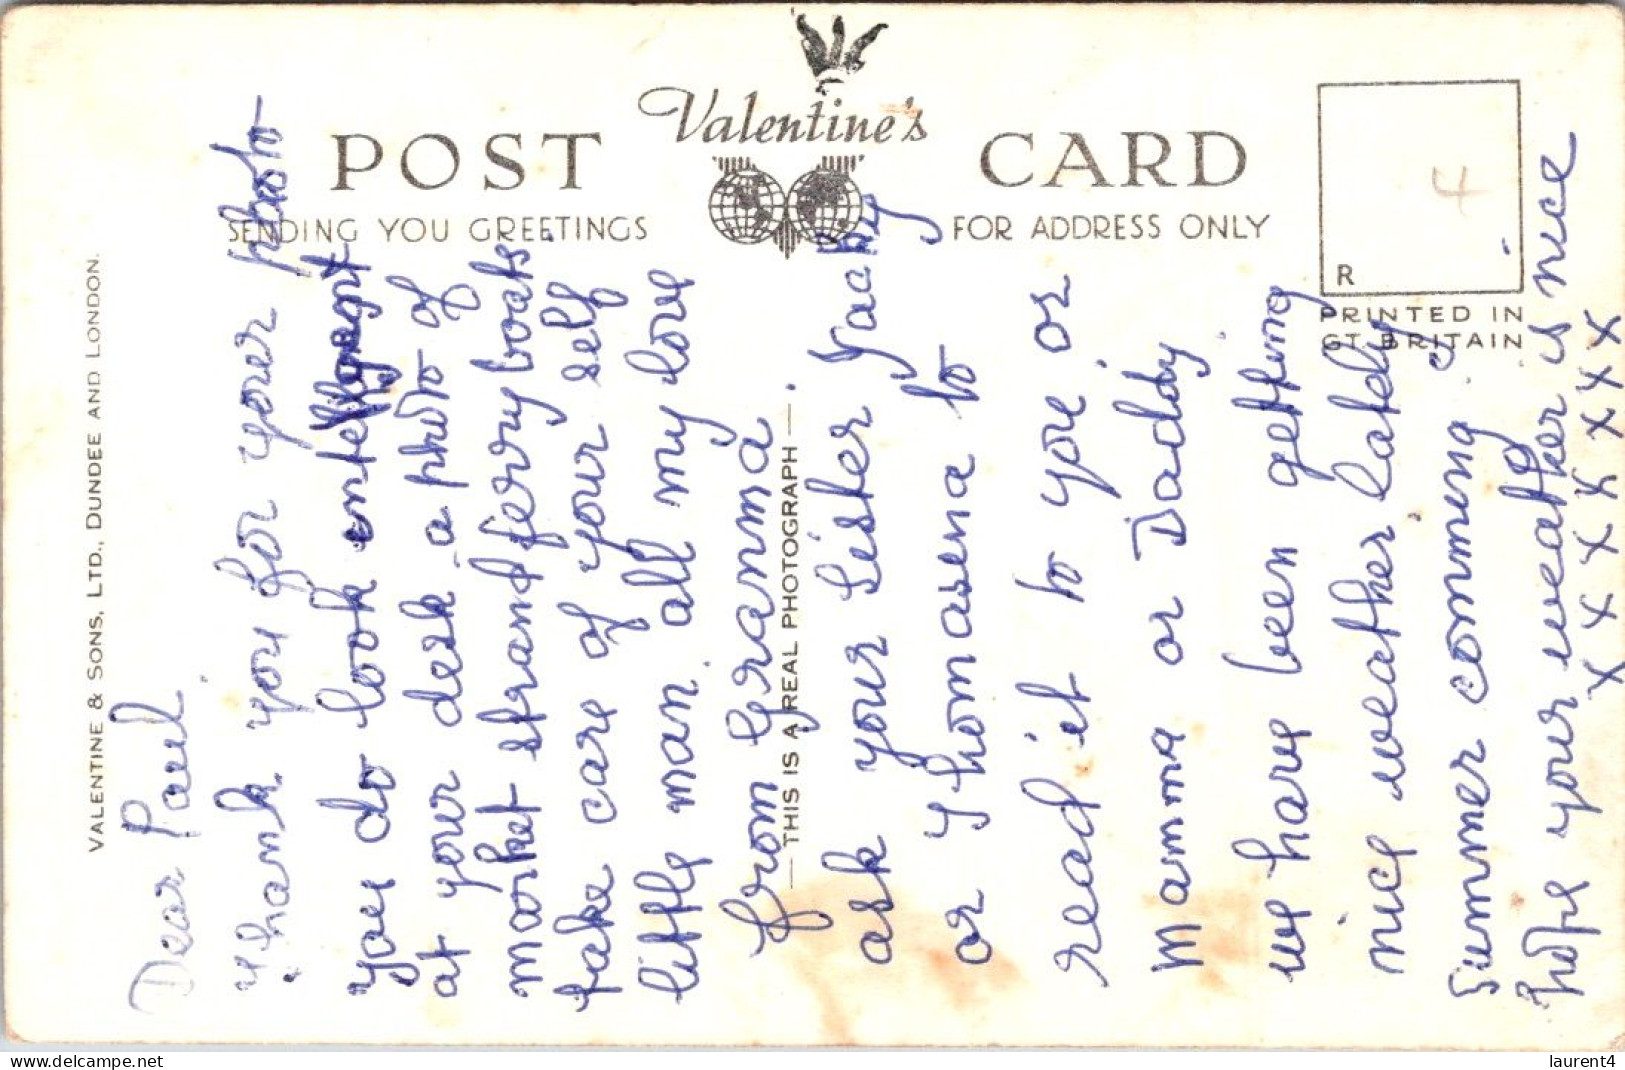 POST CARD
Valentine's
SENDING YOU GREETINGS
FOR ADDRESS ONLY
R
4
PRINTED IN
GT BRITAIN
VALENTINE & SONS, LTD., DUNDEE AND LONDON.
THIS IS A REAL PHOTOGRAPH
Dear Paul
Thank you for your photo
you do look
at your desk a photo of
market strand ferry boats.
take care of your self
little man all my love
from Granma.
ask your Sister
or Thomasena to
read it to you or
Mamma or Daddy
we have been getting
nice weather lately
Summer comming
hope your weather is nice
x x x x x x x x
www.delcampe.net
laurent4